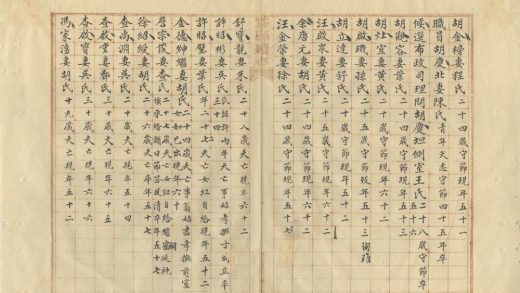 胡金榜妻程氏二十四歲守節現年五十一
職員胡慶北妻陳氏青年矢志守節四十五年卒
候選布政司理問胡慶坦側室王氏二十八歲守節卒
胡觀容妻葉氏二十四歲守節現年五十六
胡灶宜妻黃氏二十四歲守節現年五十二
胡啟璣妻孫氏二十五歲守節現年五十三
胡立達妻舒氏二十五歲守節現年五十二
汪啟眾妻黃氏二十四歲守節現年五十二
余唐元妻胡氏二十四歲守節現年五十二
汪金榮妻徐氏二十四歲守節現年五十七
舒寶龍妻朱氏二十八歲夫亡現年五十二
許紹彬妻吳氏
許紹塈妻葉氏年二十七夫亡女紅自給現年五十二
金德紳繼妻胡氏二十四歲夫亡事翁姑孝撫前室
詹宗俊妻查氏
徐紹綬妻胡氏二十六歲夫亡現年六十
查尚澗妻吳氏二十歲夫亡現年五十七
查啟堂妻鄭氏三十歲夫亡現年六十六
查啟寶妻吳氏三十歲夫亡現年六十六
馮家濤妻胡氏十九歲夫亡現年五十二